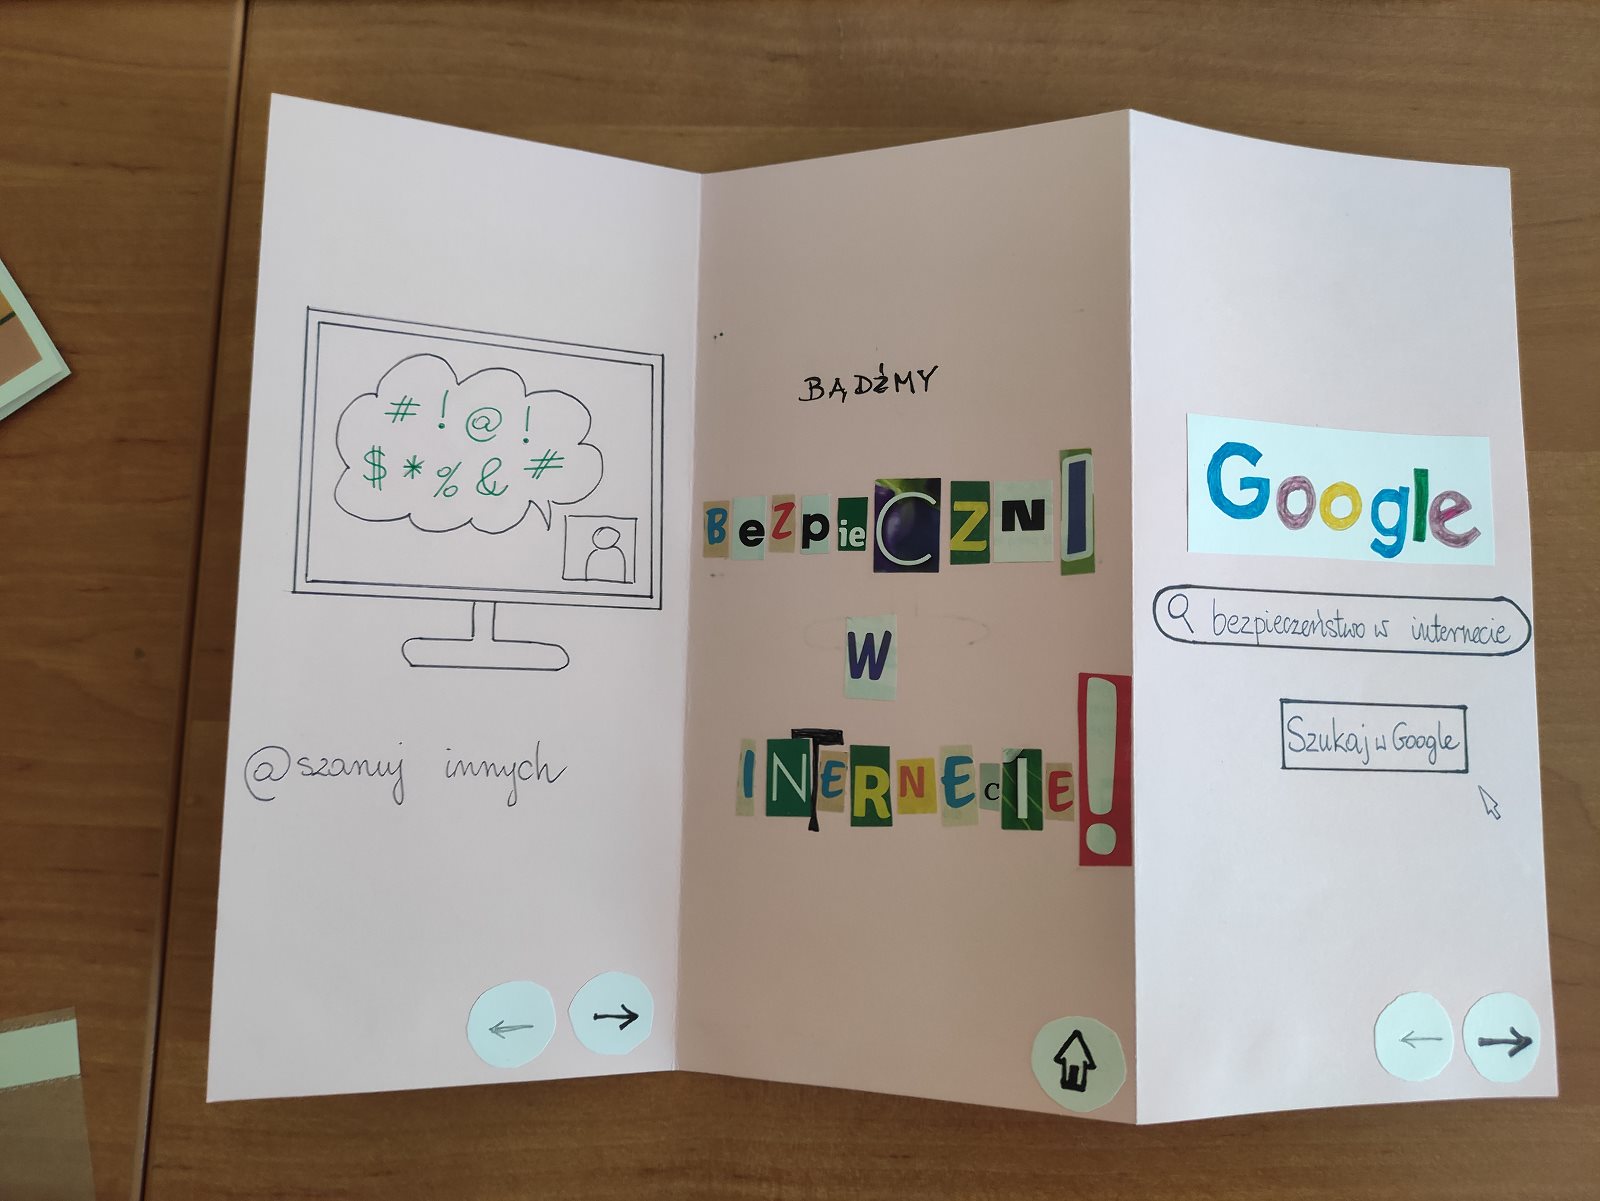 #!@!
$*%&#
@szanuj innych
BĄDŹMY
BeZpieCZNI
W
INTERNEcIE!
Google
bezpieczeństwo w internecie
Szukaj w Google